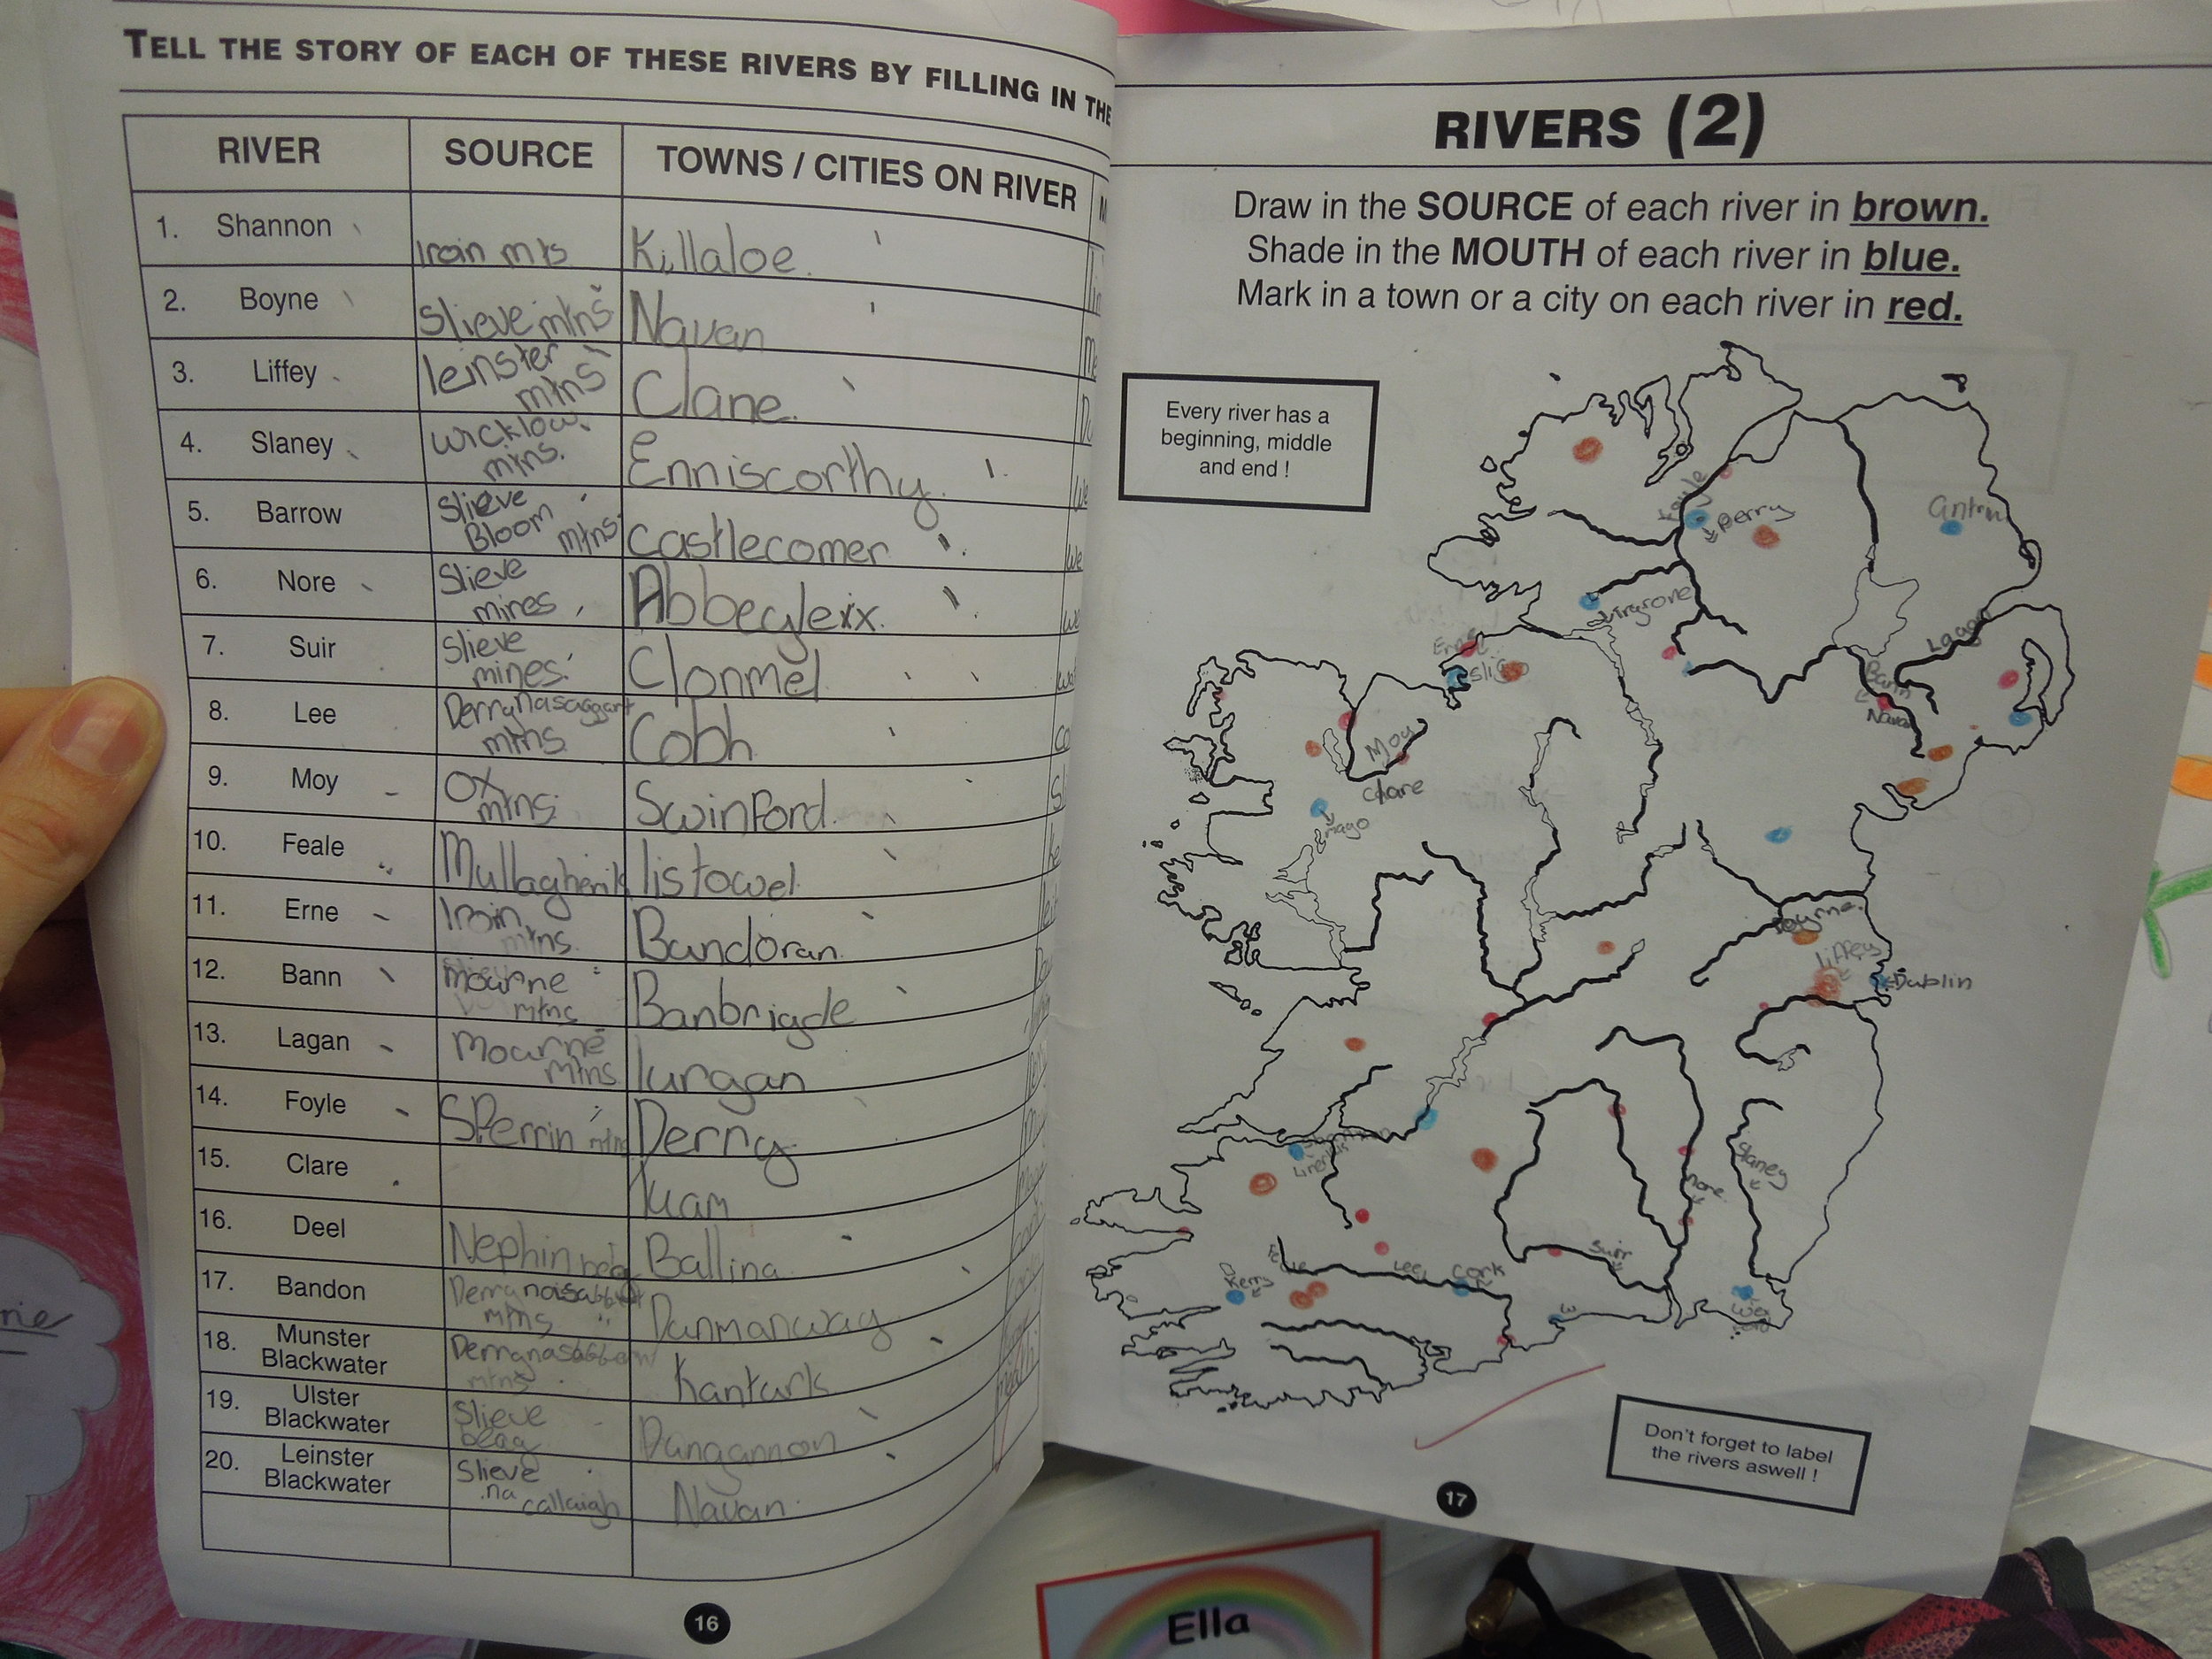 TELL THE STORY OF EACH OF THESE RIVERS BY FILLING IN THE
RIVER SOURCE TOWNS / CITIES ON RIVER M
1. Shannon Iroin mts Killaloe.
2. Boyne Slieve mtns Navan
3. Liffey leinster mtns Clane.
4. Slaney wicklow mtns. Enniscorthy.
5. Barrow Slieve Bloom mtns. castlecomer
6. Nore Slieve mines Abbegleix.
7. Suir Slieve mines Clonmel
8. Lee Derrynasaggart mtns Cobh
9. Moy Ox mtns Swinford.
10. Feale Mullagherik listowel
11. Erne Iroin mtns. Bandoran.
12. Bann mourne mtns Banbrigde
13. Lagan Mourne mtns lurgan
14. Foyle SPerrin mtns Derry
15. Clare tuam
16. Deel Nephin beg Ballina
17. Bandon mtns Danmanway
18. Munster Blackwater mtns kanturk
19. Ulster Blackwater Slieve beag Dangannon
20. Leinster Blackwater Slieve na callaigh Navan
16
RIVERS (2)
Draw in the SOURCE of each river in brown.
Shade in the MOUTH of each river in blue.
Mark in a town or a city on each river in red.
Every river has a
beginning, middle
and end !
Foyle
Derry
Antrim
Erne
Sligo
Lagan
Bann
Navan
Moy
Clare
mayo
Boyne.
Liffey
Dublin
Shannon
Slaney
nore
Suir
Lee
Cork
Kerry
Don't forget to label
the rivers aswell !
17
Ella